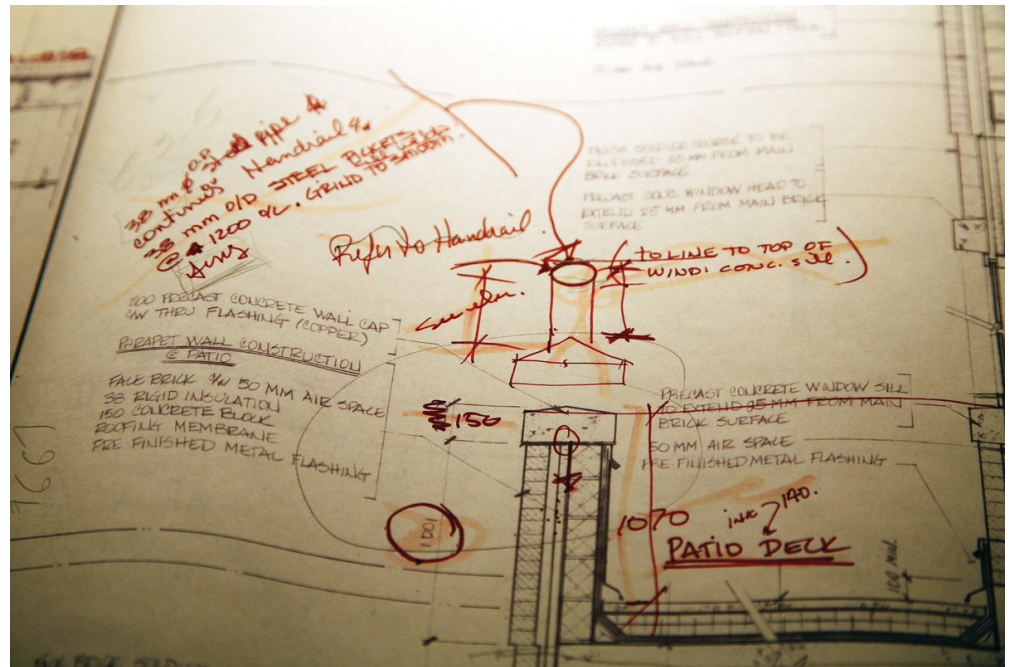 AIR SPACE
38 mm ø O.D.
steel pipe
continuous Handrail
38 mm O/D STEEL PICKETS
@ 1200 o/c. GRIND TO SMOOTH.
Refer to Handrail.
FINISH SOLDIER COURSE TO BE
EXTENDED 25 MM FROM MAIN
BRICK SURFACE
PRECAST CONC. WINDOW HEAD TO
EXTEND 25 MM FROM MAIN BRICK
SURFACE
(TO LINE TO TOP OF
CONC. sill.)
200 PRECAST CONCRETE WALL CAP
C/W THRU FLASHING (COPPER)
PARAPET WALL CONSTRUCTION
@ PATIO
FACE BRICK C/W 50 MM AIR SPACE
38 RIGID INSULATION
150 CONCRETE BLOCK
ROOFING MEMBRANE
PRE FINISHED METAL FLASHING
150
PRECAST CONCRETE WINDOW SILL
TO EXTEND 25 MM FROM MAIN
BRICK SURFACE
50 MM AIR SPACE
PRE-FINISHED METAL FLASHING
1001
1070
140.
PATIO DECK
100 min.
FACE BRICK